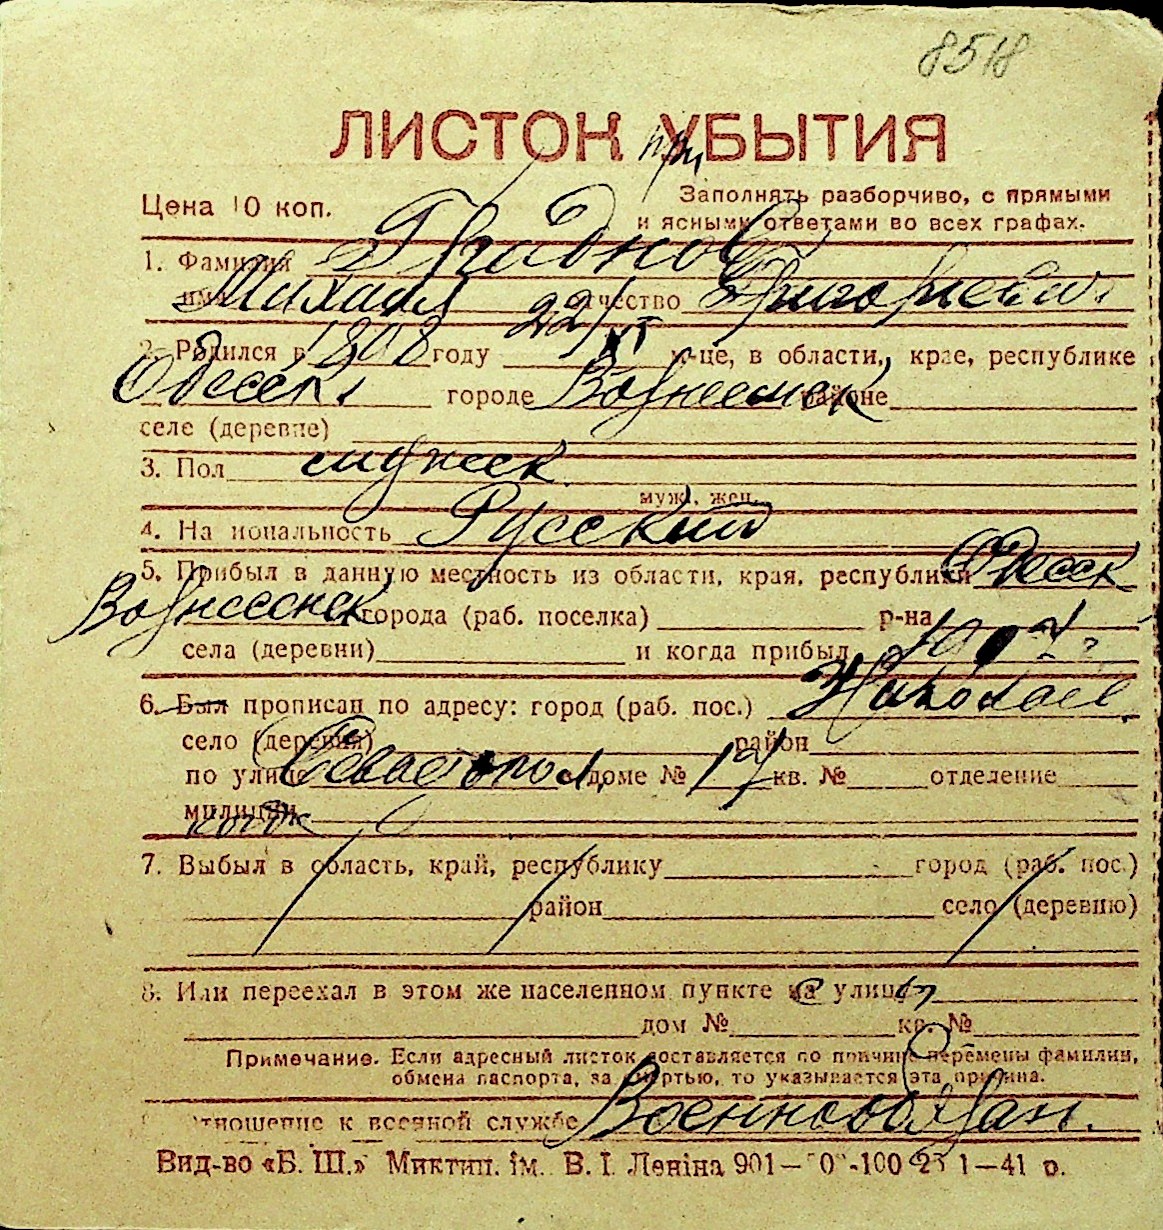 8518
ЛИСТОК УБЫТИЯ
при
Цена 10 коп.
Заполнять разборчиво, с прямыми
и ясными ответами во всех графах.
1. Фамилия Граднов
имя Михаил отчество Григорьевич
22/VI
2. Родился в 1898 году м-це, в области, крае, республике
Одесск. городе Вознесенск районе
селе (деревне)
3. Пол мужск.
муж., жен.
4. Национальность Русский
5. Прибыл в данную местность из области, края, республики Одесск
Вознесенск города (раб. поселка) р-на
села (деревни) и когда прибыл
6. Был прописан по адресу: город (раб. пос.) Николаев.
село (деревня) район
по улице Севастопол. в доме № 17 кв. № отделение
милиции
7. Выбыл в область, край, республику город (раб. пос.)
район село (деревню)
8. Или переехал в этом же населенном пункте на улицу
дом № кв. №
Примечание. Если адресный листок составляется по причине перемены фамилии,
обмена паспорта, за смертью, то указывается эта причина.
отношение к военной службе Военнообязан.
Вид-во «Б. Ш.» Миктип. ім. В. І. Леніна 901— 0 -100 23 1—41 р.